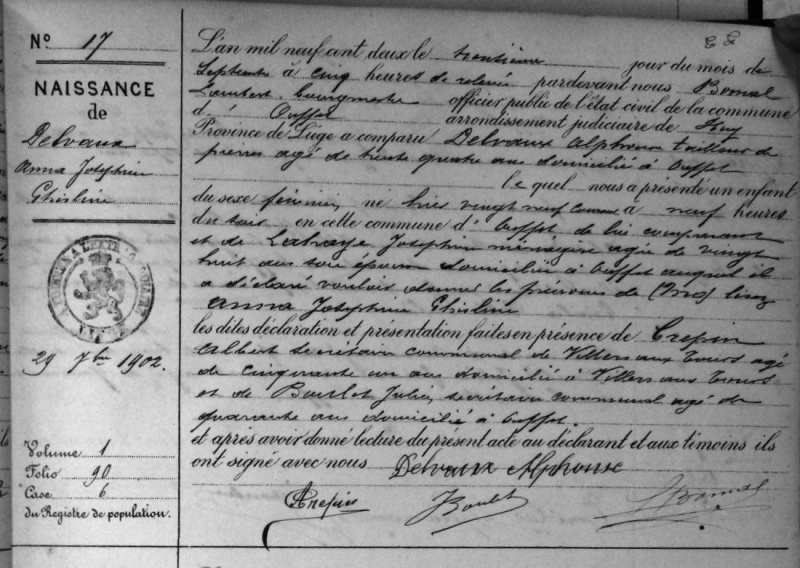 N° 17
NAISSANCE
de
Delvaux
Anna Joséphine
Ghisline
29 7bre 1902.
Volume 1
Folio 90
Case 6
du Registre de population.
L'an mil neuf cent deux le trentième jour du mois de
Septembre à cinq heures de relevée pardevant nous Bonal
Lambert bourgmestre officier public de l'état civil de la commune
d' Ouffet arrondissement judiciaire de Huy
Province de Liége a comparu Delvaux Alphonse tailleur de
pierres agé de trente quatre ans domicilié à Ouffet
le quel nous a présenté un enfant
du sexe féminin, né hier vingt neuf courant à neuf heures
du soir en cette commune d'Ouffet de lui comparant
et de Lahaye Joséphine ménagère agée de vingt
huit ans son épouse domiciliée à Ouffet auquel il
a déclaré vouloir donner les prénoms de
Anna Joséphine Ghisline
les dites déclaration et présentation faites en présence de Crepin
Albert secrétaire communal de Villers aux Tours agé
de cinquante un ans domicilié à Villers aux Tours
et de Boulet Jules, secrétaire communal agé de
quarante ans domicilié à Ouffet.
et après avoir donné lecture du présent acte au déclarant et aux témoins ils
ont signé avec nous Delvaux Alphonse
ACrepin JBoulet LBonal